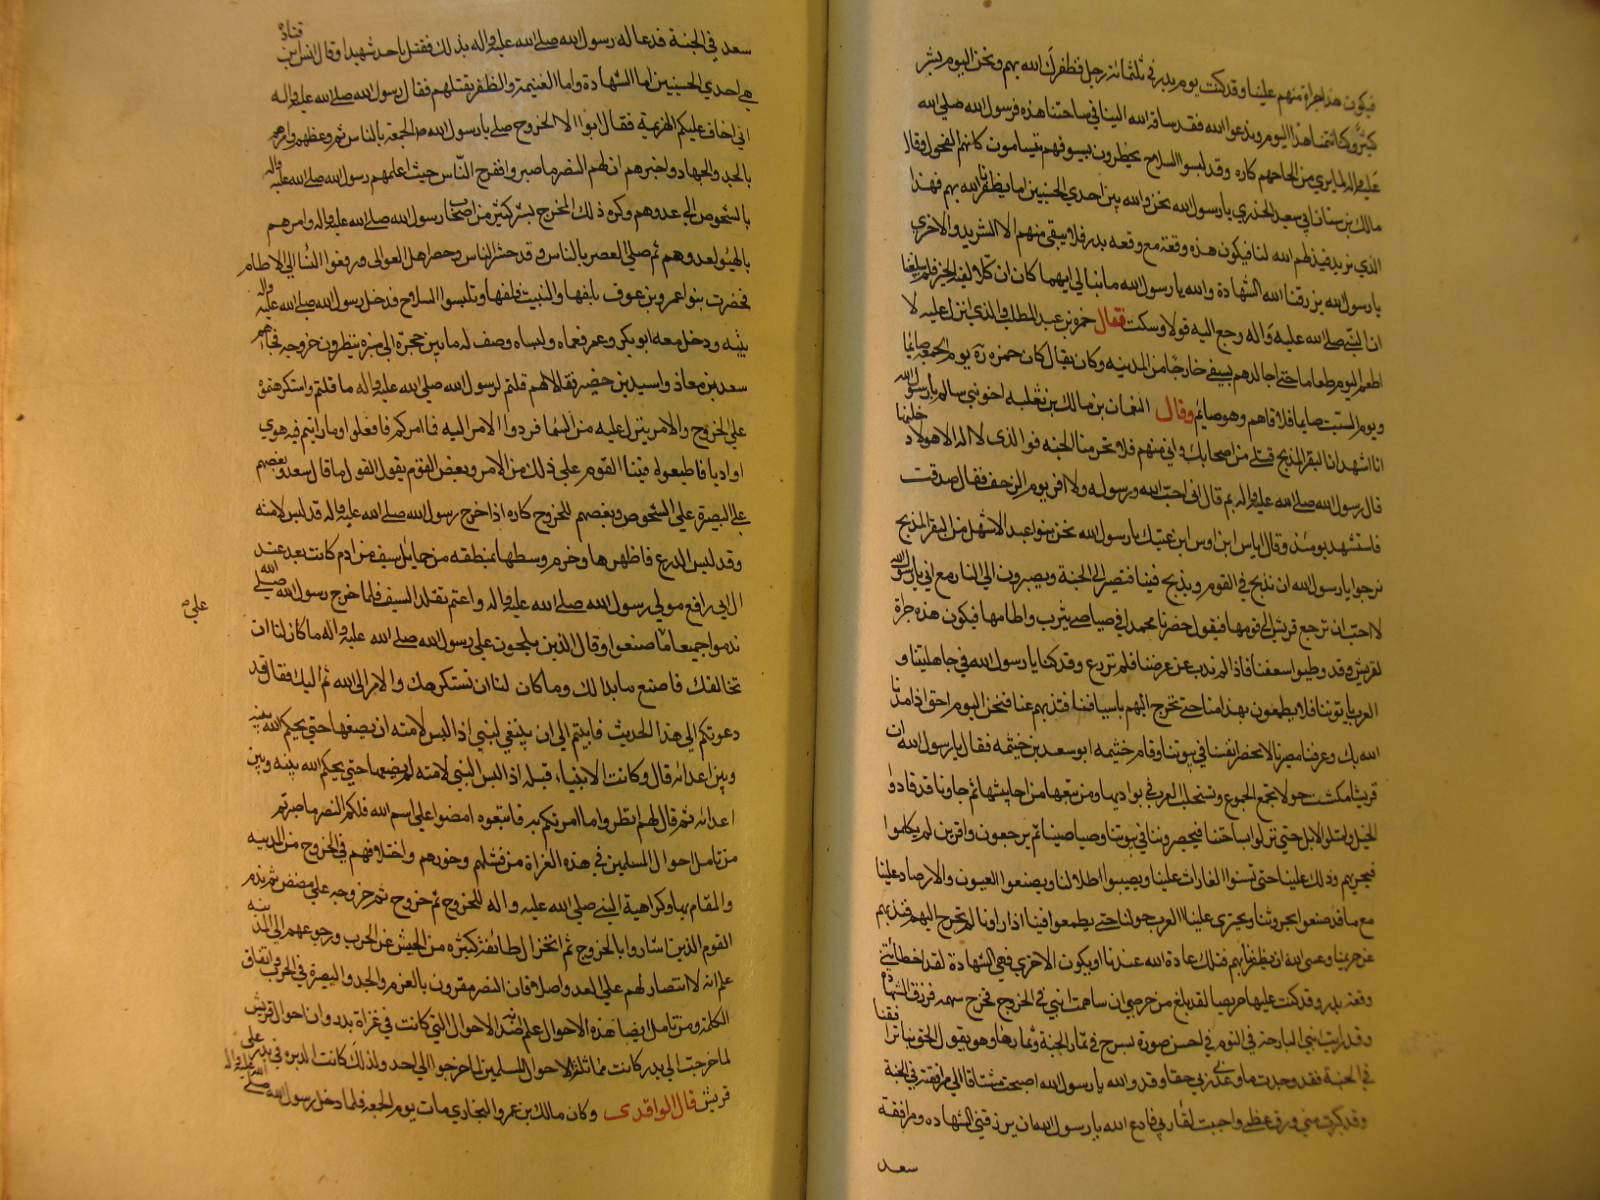 فيكون هذا جراة منهم علينا وقد كنت يوم بدر في ثلثمائة رجل فظفرك الله بهم ونحن اليوم بشر
كثير وكنا نتمنا هذا اليوم وندعوا الله فقد ساقه الله الينا في ساحتنا هذه فرسول الله صلي الله
عليه واله لما يري من الحاحهم كاره وقد لبسوا السلاح يخطرون بسيوفهم يتسامون كانهم الفحول وقال
مالك بن سنان ابي سعيد الخدري يا رسول الله نحن والله بين احدي الحسنيين اما يظفرنا الله بهم فهذا
الذي نريد فيذلهم الله لنا فيكون هذه وقعة مع وقعه بدر فلا يبقي منهم الا الشريد والاخري
يا رسول الله يرزقنا الله الشهادة والله يا رسول الله ما نبالي ايهما كان ان كلا لفيه الخير فلم يبلغنا
ان النبي صلي الله عليه واله رجع اليه قولا وسكت فقال حمزه بن عبد المطلب والذي انزل عليه لا
اطعم اليوم طعاما حتي اجالدهم بسيفي خارجا من المدينه وكان يقال كان حمزه يوم الجمعه صايما
ويوم السبت صايما فلاقاهم وهو صايم وقال النعمان بن مالك بن ثعلبه اخو بني سالم يا رسول الله
انا اشهد ان البقر المذبح قتلي من اصحابك واني منهم فلا تحرمنا الجنه فوالذي لا اله الا هو لادخلنها
قال رسول الله صلي الله عليه واله بم قال اني احب الله ورسوله ولا افر يوم الزحف فقال صدقت
فاستشهد يومئذ وقال اياس ابن اوس ابن عتيك يا رسول الله نحن بنوا عبد الاشهل من البقر المذبح
نرجوا يا رسول الله ان نذبح في القوم ويذبح فينا فنصير الي الجنة ويصيرون الي النار مع اني يا رسول الله
لا احب ان ترجع قريش الي قومها فيقول حضرنا محمدا في صياصي يثرب واطامها فيكون هذه جراة
لقريش وقد وطيوا سعفنا فاذا لم نذب عن عرضنا فلم نزرع وقد كنا يا رسول الله في جاهليتنا و
العرب ياتوننا فلا يطمعون بهذا منا حتي نخرج اليهم باسيافنا فنذبهم عنا فنحن اليوم احق اذ امدنا
الله بك وعرفنا مصيرنا لا نحصر انفسنا في بيوتنا وقام خثيمه ابو سعد بن خثيمه فقال يا رسول الله ان
قريشا مكثت حولا تجمع الجموع وتستجلب العرب في بواديها ومن تبعها من احابيشها ثم جاونا قد قادوا
الخيل وامتطوا الابل حتي نزلوا بساحتنا فيحصروننا في بيوتنا وصياصينا ثم يرجعون وافرين لم يكلموا
فيجريهم ذلك علينا حتي تشنوا الغارات علينا ويصيبوا اطلالنا ويضعوا العيون والارصاد علينا
مع ما قد صنعوا بحروثنا ويجتري علينا العرب حولنا حتي يطمعوا فينا اذا راونا لم نخرج اليهم فنذبهم
عن حريمنا وعسي الله ان يظفرنا بهم فتلك عادة الله عندنا او يكون الاخري فهي الشهادة لقد اخطاتني
وقعة بدر وقد كنت عليها حريصا لقد بلغ من حرصي ان ساهمت ابني في الخروج فخرج سهمه فرزق الشهادة
وقد رايت ابني البارحة في النوم في احسن صورة يسرح في ثمار الجنة وثمارها وهو يقول الحق بنا ترافقنا
في الجنة فقد وجدت ما وعدني ربي حقا وقد والله يا رسول الله اصبحت مشتاقا الي مرافقته في الجنة
وقد كبرت سني ورق عظمي واحببت لقاء ربي فادع الله يا رسول الله ان يرزقني الشهاده ومرافقة
سعد
سعد في الجنة فدعا له رسول الله صلي الله عليه واله بذلك فقتل باحد شهيدا وقال انس ابن قتادة
هي احدي الحسنيين اما الشهادة واما الغنيمة والظفر بقتلهم فقال رسول الله صلي الله عليه واله
اني اخاف عليكم الهزيمة فقال ابوا الا الخروج صلي يا رسول الله الجمعة بالناس ثم وعظهم وامرهم
بالجد والجهاد واخبرهم ان لهم النصر ما صبروا ففرح الناس حيث اعلمهم رسول الله صلي الله عليه واله
بالشخوص الي عدوهم وكره ذلك المخرج بشر كثير من اصحاب رسول الله صلي الله عليه واله وامرهم
بالتهيؤ لعدوهم ثم صلي العصر بالناس وقد حشد الناس وحضر اهل العوالي ورفعوا النساء الي الاطام
فحضرت بنوا عمرو بن عوف بلفها والنبيت فلفها وتلبسوا السلاح فدخل رسول الله صلي الله عليه واله
بيته ودخل معه ابو بكر وعمر فعماه ولبساه وصف له ما بين حجرة الي منبره ينتظرون خروجه فجاءهم
سعد بن معاذ واسيد بن حضير فقالا لهم قلتم لرسول الله صلي الله عليه واله ما قلتم واستكرهتموه
علي الخروج والامر ينزل عليه من السما فردوا الامر اليه فما امركم فافعلوا وما رايتم فيه هوي
او ادبا فاطيعوه فبينا القوم علي ذلك من الامر وبعض القوم يقول القول ما قال سعد وبعضهم
علي البصيرة علي الشخوص وبعضهم للخروج كاره اذا خرج رسول الله صلي الله عليه واله قد لبس لامته
وقد لبس الدرع فاظهرها وخرم وسطها بمنطقه من حمايل سيف من ادم كانت بعد عند
ال ابي رافع مولي رسول الله صلي الله عليه واله واعتم تقلد السيف فلما خرج رسول الله صلي الله
ندموا جميعا ما صنعوا وقال الذين يلحون علي رسول الله صلي الله عليه واله ما كان لنا ان
علي
نخالفك فاصنع ما بدا لك وما كان لنا ان نستكرهك والامر الي الله ثم اليك فقال قد
دعوتكم الي هذا الحديث فابيتم الي ان ينبغي لنبي اذا لبس لامته ان يضعها حتي يحكم الله بينه
وبين اعدائه قال وكانت الانبياء قبله اذا لبس النبي لامته لم يضعها حتي يحكم الله بينه وبين
اعدائه ثم قال لهم انظروا ما امرتكم به فاتبعوه امضوا علي اسم الله فلكم النصر ما صبرتم
من تامل احوال المسلمين في هذه الغزاة من فشلهم وخورهم واختلافهم في الخروج من المدينه
والمقام بها وكراهية النبي صلي الله عليه واله للخروج ثم خروجه علي مضض ثم ندم
القوم الذين اشاروا بالخروج ثم انخزال طائفة كثيره من الجيش عن الحرب ورجوعهم الي المدينه
علم انه لا انتصار لهم علي العدو اصلا فان النصر مقرون بالعزم والجد والبصيرة في الحرب واتفاق
الكلمة ومن تامل ايضا هذه الاحوال علم انها ضد الاحوال التي كانت في غزاة بدر وان احوال قريش
لما خرجت الي بدر كانت مماثلة لاحوال المسلمين لما خرجوا الي احد ولذلك كانت الدبره في بدر علي
قريش قال الواقدي وكان مالك بن عمرو النجاري مات يوم الجمعه فلما دخل رسول الله صلي الله عليه واله